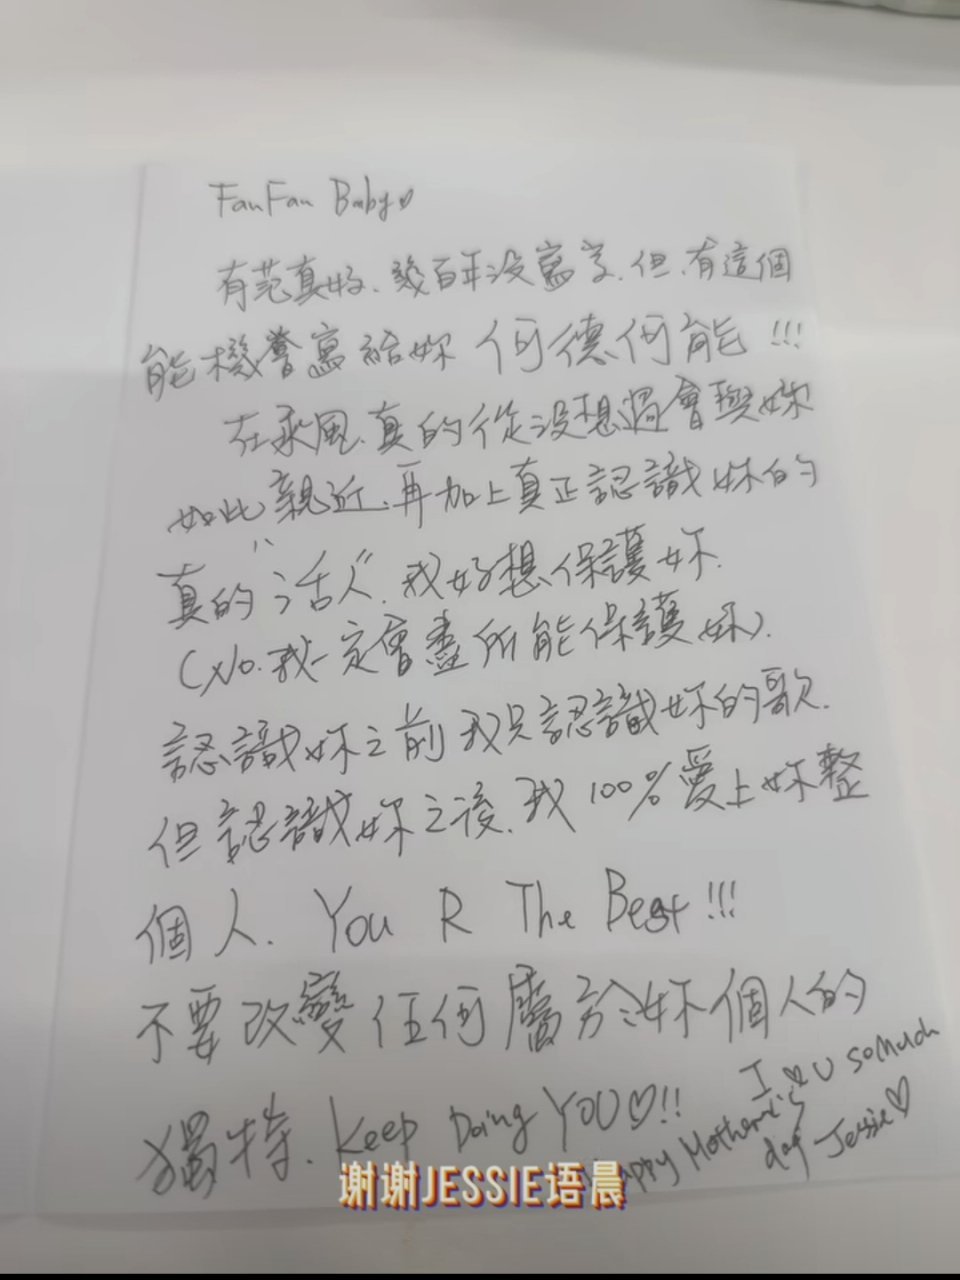 FanFan Baby♡
有范真好、幾百年沒寫字、但、有這個
能機會寫給妳 何德何能!!!
在乘風、真的從沒想過會與妳
如此親近、再加上真正認識妳的
真的"活人"、我好想保護妳.
(No.我一定會盡所能保護妳).
認識妳之前我只認識妳的歌.
但認識妳之後、我100%愛上妳整
個人. You R The Best!!!
不要改變任何屬於妳個人的
獨特. Keep Doing YOU♡!!
I ♡ U so much
Happy Mother's
day Jessie♡
谢谢JESSIE语晨